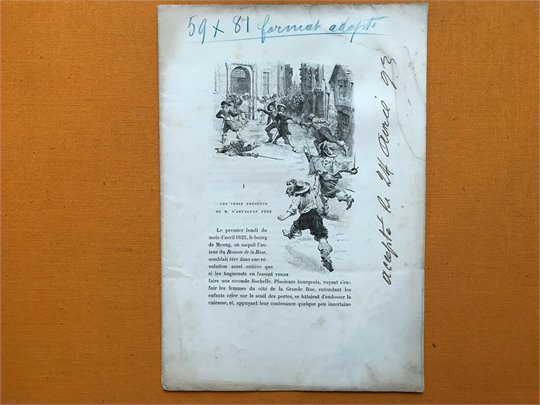 59 x 81 format adopté
accepté le 24 avril 93
I
LES TROIS PRÉSENTS
DE M. D'ARTAGNAN PÈRE
Le premier lundi du
mois d'avril 1625, le bourg
de Meung, où naquit l'au-
teur du Roman de la Rose,
semblait être dans une ré-
volution aussi entière que
si les huguenots en fussent venus
faire une seconde Rochelle. Plusieurs bourgeois, voyant s'en-
fuir les femmes du côté de la Grande Rue, entendant les
enfants crier sur le seuil des portes, se hâtaient d'endosser la
cuirasse, et, appuyant leur contenance quelque peu incertaine